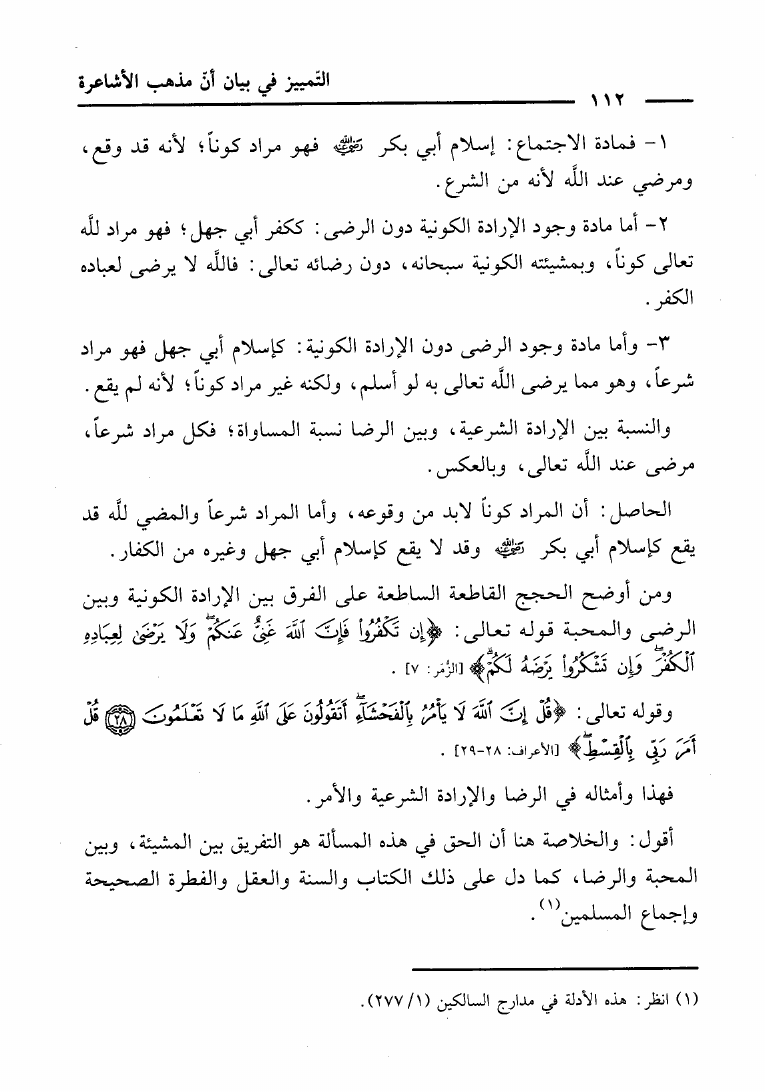 التّمييز في بيان أنّ مذهب الأشاعرة
١١٢
١- فمادة الاجتماع: إسلام أبي بكر رضي الله عنه فهو مراد كوناً؛ لأنه قد وقع،
ومرضي عند اللَّه لأنه من الشرع.
٢- أما مادة وجود الإرادة الكونية دون الرضى: ككفر أبي جهل؛ فهو مراد للَّه
تعالى كوناً، وبمشيئته الكونية سبحانه، دون رضائه تعالى: فاللَّه لا يرضى لعباده
الكفر.
٣- وأما مادة وجود الرضى دون الإرادة الكونية: كإسلام أبي جهل فهو مراد
شرعاً، وهو مما يرضى اللَّه تعالى به لو أسلم، ولكنه غير مراد كوناً؛ لأنه لم يقع.
والنسبة بين الإرادة الشرعية، وبين الرضا نسبة المساواة؛ فكل مراد شرعاً،
مرضى عند اللَّه تعالى، وبالعكس.
الحاصل: أن المراد كوناً لابد من وقوعه، وأما المراد شرعاً والمضي للَّه قد
يقع كإسلام أبي بكر رضي الله عنه وقد لا يقع كإسلام أبي جهل وغيره من الكفار.
ومن أوضح الحجج القاطعة الساطعة على الفرق بين الإرادة الكونية وبين
الرضى والمحبة قوله تعالى: ﴿إِن تَكْفُرُواْ فَإِنَّ ٱللَّهَ غَنِىٌّ عَنكُمْۖ وَلَا يَرْضَىٰ لِعِبَادِهِ
ٱلْكُفْرَۖ وَإِن تَشْكُرُواْ يَرْضَهُ لَكُمْۗ﴾ [الزُّمَر: ٧] .
وقوله تعالى: ﴿قُلْ إِنَّ ٱللَّهَ لَا يَأْمُرُ بِٱلْفَحْشَآءِۖ أَتَقُولُونَ عَلَى ٱللَّهِ مَا لَا تَعْلَمُونَ ۝٢٨ قُلْ
أَمَرَ رَبِّى بِٱلْقِسْطِۖ﴾ [الأعراف: ٢٨-٢٩] .
فهذا وأمثاله في الرضا والإرادة الشرعية والأمر.
أقول: والخلاصة هنا أن الحق في هذه المسألة هو التفريق بين المشيئة، وبين
المحبة والرضا، كما دل على ذلك الكتاب والسنة والعقل والفطرة الصحيحة
وإجماع المسلمين(١).
(١) انظر: هذه الأدلة في مدارج السالكين (١/ ٢٧٧).